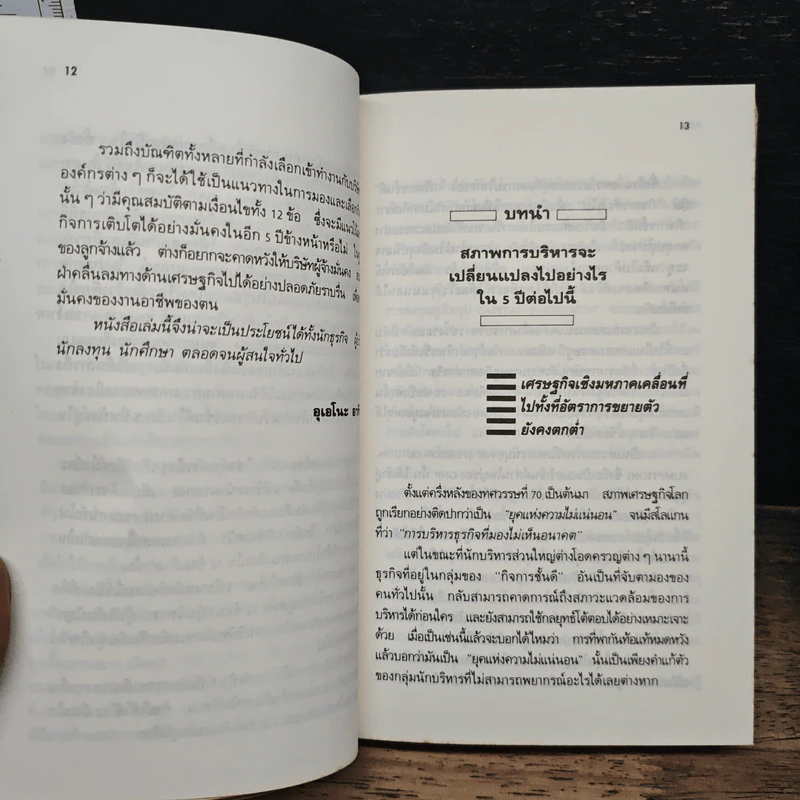 12
รวมถึงบัณฑิตทั้งหลายที่กำลังเลือกเข้าทำงานกับบริษัท
องค์กรต่าง ๆ ก็จะได้ใช้เป็นแนวทางในการมองและเลือก
นั้น ๆ ว่ามีคุณสมบัติตามเงื่อนไขทั้ง 12 ข้อ ซึ่งจะมีแนวโน้ม
กิจการเติบโตได้อย่างมั่นคงในอีก 5 ปีข้างหน้าหรือไม่
ของลูกจ้างแล้ว ต่างก็อยากจะคาดหวังให้บริษัทผู้จ้างมั่นคง
ฝ่าคลื่นลมทางด้านเศรษฐกิจไปได้อย่างปลอดภัยราบรื่น
มั่นคงของงานอาชีพของตน
หนังสือเล่มนี้จึงน่าจะเป็นประโยชน์ได้ทั้งนักธุรกิจ
นักลงทุน นักศึกษา ตลอดจนผู้สนใจทั่วไป
อุเอโนะ
13
บทนำ
สภาพการบริหารจะ
เปลี่ยนแปลงไปอย่างไร
ใน 5 ปีต่อไปนี้
เศรษฐกิจเชิงมหภาคเคลื่อนที่
ไปทั้งที่อัตราการขยายตัว
ยังคงตกต่ำ
ตั้งแต่ครึ่งหลังของทศวรรษที่ 70 เป็นต้นมา สภาพเศรษฐกิจโลก
ถูกเรียกอย่างติดปากว่าเป็น "ยุคแห่งความไม่แน่นอน" จนมีสโลแกน
ที่ว่า "การบริหารธุรกิจที่มองไม่เห็นอนาคต"
แต่ในขณะที่นักบริหารส่วนใหญ่ต่างโอดครวญต่าง ๆ นานานี้
ธุรกิจที่อยู่ในกลุ่มของ "กิจการชั้นดี" อันเป็นที่จับตามองของ
คนทั่วไปนั้น กลับสามารถคาดการณ์ถึงสภาวะแวดล้อมของการ
บริหารได้ก่อนใคร และยังสามารถใช้กลยุทธ์โต้ตอบได้อย่างเหมาะเจาะ
ด้วย เมื่อเป็นเช่นนี้แล้วจะบอกได้ไหมว่า การที่พากันท้อแท้หมดหวัง
แล้วบอกว่ามันเป็น "ยุคแห่งความไม่แน่นอน" นั้นเป็นเพียงคำแก้ตัว
ของกลุ่มนักบริหารที่ไม่สามารถพยากรณ์อะไรได้เลยต่างหาก